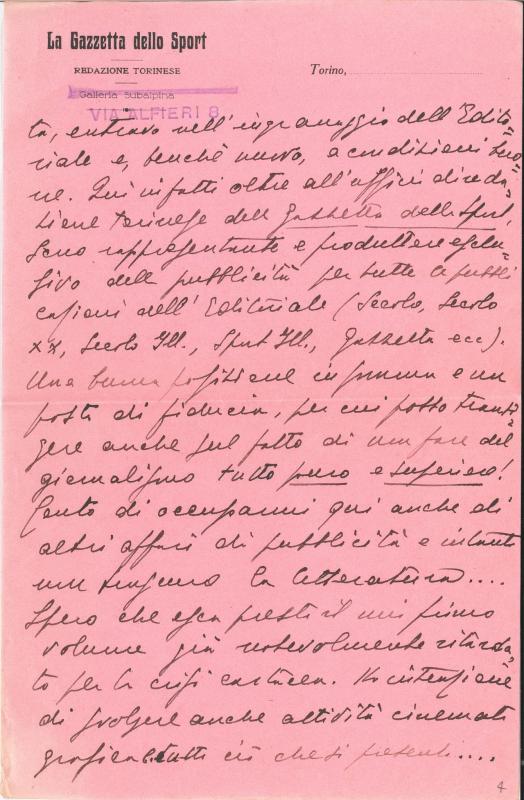 La Gazzetta dello Sport
REDAZIONE TORINESE
Torino,
Galleria Subalpina
VIA ALFIERI 8
ta, entravo nell'ingranaggio dell'Edito=
riale e, benchè nuovo, a condizioni buo=
ne. Qui infatti oltre all'ufficio di reda=
zione torinese della Gazzetta dello Sport,
sono rappresentante e produttore esclu=
sivo della pubblicità per tutte le pubbli
cazioni dell'Editoriale (Secolo, Secolo
XX, Secolo Ill., Sport Ill., Gazzetta ecc).
Una buona posizione insomma e un
posto di fiducia, per cui posso transi=
gere anche sul fatto di non fare del
giornalismo tutto puro e superiore!
Conto di occuparmi qui anche di
altri affari di pubblicità e intanto
non trascuro la letteratura....
Spero che esca presto il mio primo
volume già notevolmente ritarda=
to per la crisi cartacea. Ho intenzione
di svolgere anche attività cinemato
grafica e tutto ciò che si presenti....
4